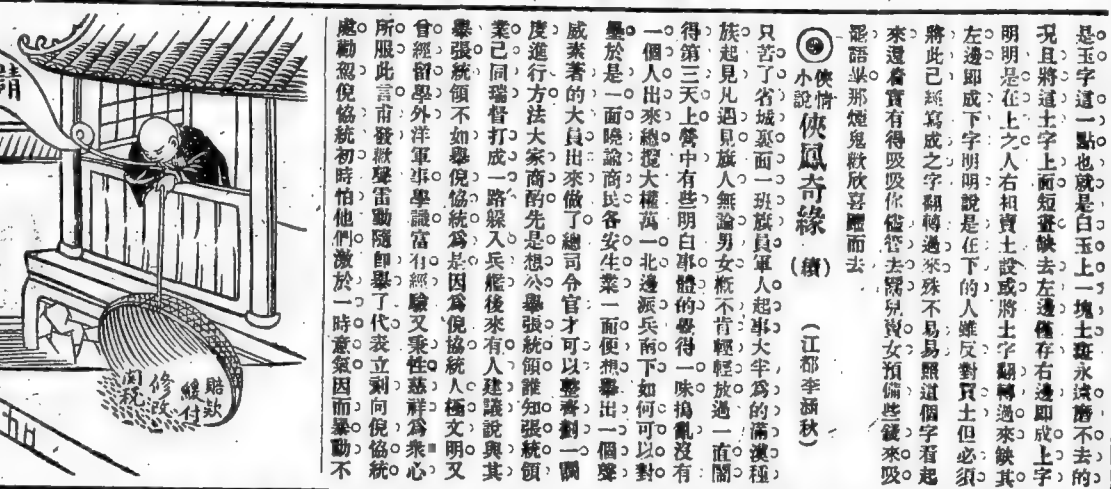 是玉字這一點也就是白玉上一塊土斑永遠磨不去的
况且將這士字上面短畫缺去左邊僅存右邊即成上字
明明是在上之人右袒賣土設或將士字翻轉過來缺其
左邊即成下字明明說是在下的人雖反對買土但必須
將此已經寫成之字翻轉過來殊不易易照這個字看起
來還着實有得吸吸你儘管去鬻兒賣女預備些錢來吸
罷語畢那煙鬼歡欣喜躍而去
俠情小說 俠鳳奇緣 (續) (江都李涵秋)
只苦了省城裏面一班旗員軍人起事大半爲的滿漢種
族起見凡遇見旗人無論男女概不肯輕輕放過一直鬧
得第三天上營中有些明白事體的覺得一味搗亂沒有
一個人出來總攬大權萬一北邊派兵南下如何可以對
壘於是一面曉諭商民各安生業一面便想舉出一個聲
威素著的大員出來做了總司令官才可以整齊劃一調
度進行方法大家商酌先是想公舉張統領誰知張統領
業已同瑞督打成一路躲入兵艦後來有人建議說與其
舉張統領不如舉倪協統爲是因爲倪協統人極文明又
曾經留學外洋軍事學識富有經驗又秉性慈祥爲衆心
所服此言甫發歡聲雷動隨即舉了代表立刻向倪協統
處勸駕倪協統初時怕他們激於一時意氣因而暴動不
賠款
緩付
修改
関稅